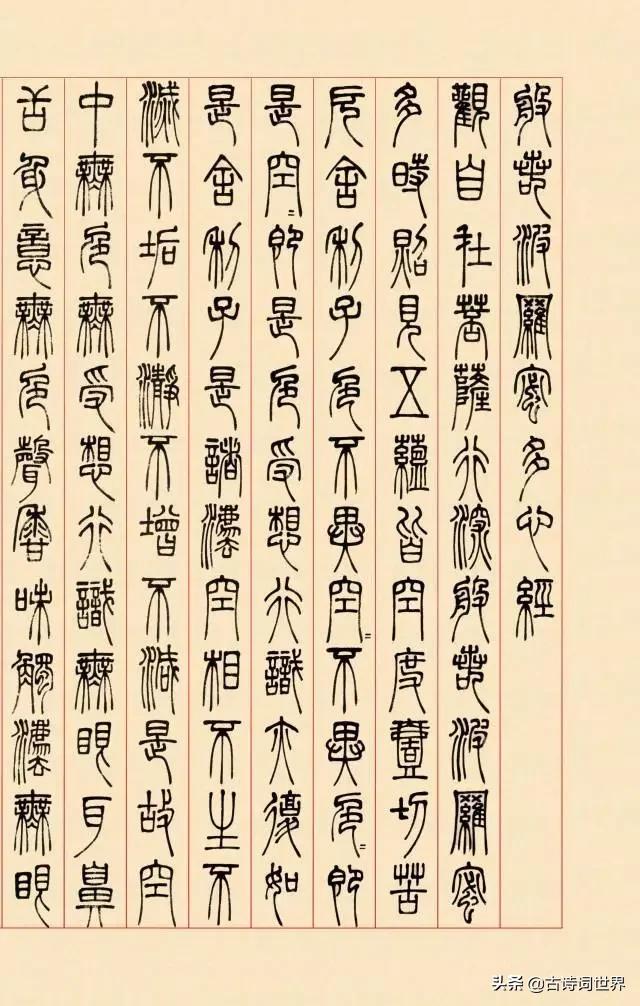 般若波羅蜜多心經
觀自在菩薩行深般若波羅蜜
多時照見五蘊皆空度壹切苦
厄舍利子色不異空〻不異色〻即
是空〻即是色受想行識亦復如
是舍利子是諸灋空相不生不
滅不垢不瀞不增不減是故空
中無色無受想行識無眼耳鼻
舌身意無色聲香味觸灋無眼
头条 @古诗词世界